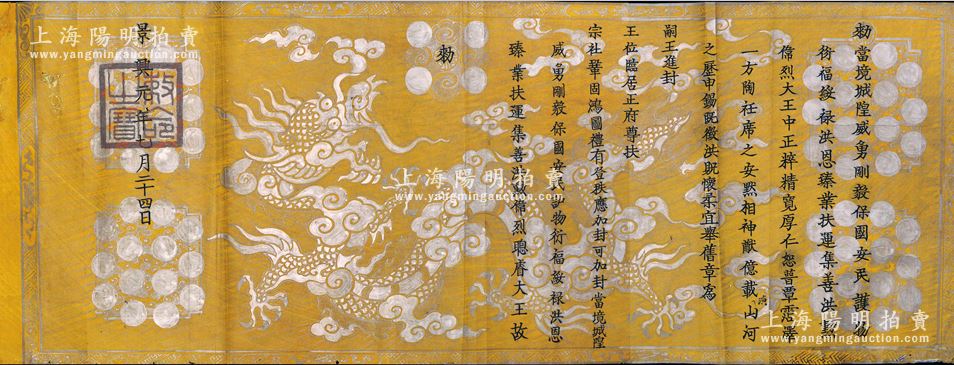 敕當境城隍威勇剛毅保國安民護物
衍福綏祿洪恩臻業扶運集善洪勳
偉烈大王中正粹精寬厚仁恕普覃霑澤
一方陶衽席之安默相神猷億載山河
之歷申錫既徵洪貺懷柔宜舉舊章為
嗣王進封
王位臨居正府尊扶
宗社鞏固鴻圖禮有登秩應加封可加封當境城隍
威勇剛毅保國安民護物衍福綏祿洪恩
臻業扶運集善洪勳偉烈聰睿大王故
敕
景興年七月二十四日
敕命之寶
上海陽明拍賣
www.yangmingauction.com
上海陽明拍賣
www.yangmingauction.com
上海陽明拍賣
www.yangmingauction.com
上海陽明拍賣
www.yangmingauction.com
上海陽明拍賣
www.yangmingauction.com